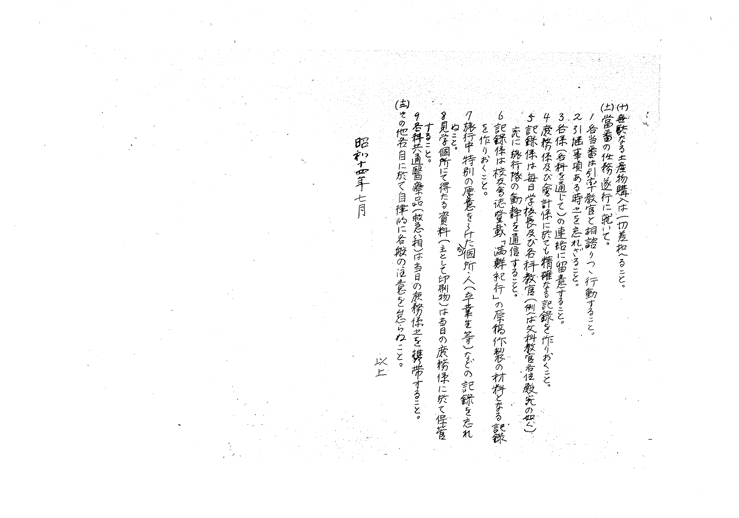 (十)無駄なる土産物購入は一切差控へること。
(土)當番の任務遂行に就いて。
1各当番は引率教官と相談りつゝ行動すること、
2引継事項ある時之を忘れざること。
3各係(各科を通じて)の連絡に留意すること。
4庶務係及び会計係に於ても精確なる記録を作りおくこと。
5記録係は毎日学校長及び各科教官(例は文科教官各位殿宛の如く)
宛に旅行隊の動静を通信すること。
6記録係は校友会誌登載「満鮮紀行」の原稿作製の材料となる記録
を作りおくこと。
7旅行中特別の厚意をうけた個所・人(卒業生等)などの記録を忘れ
ぬこと。
8見学個所にて得たる資料(主として印刷物)は当日の庶務係に於て保管
すること。
9各科共通医療品(救急箱)は当日の庶務係之を携帯すること。
その他各自に於て自律的に各般の注意を怠らぬこと。
以上
昭和十四年七月